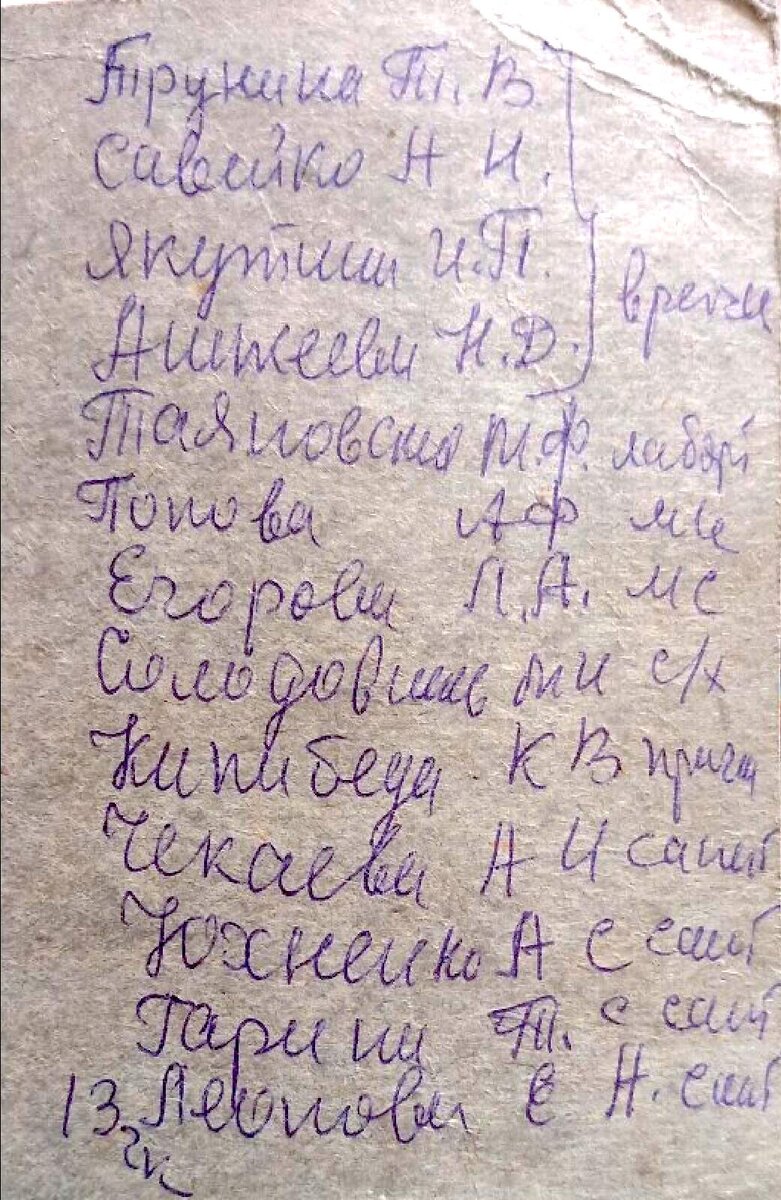 Трунина Т. В.
Савейко А Н.
Якутина И.П. врачи
Анжеева Н.Д.
Таяновская М.Ф. лабор
Попова АФ мс
Егорова Л.А. мс
Солодовник МИ с/х
Кипибеда К В прач
Чекаева А И санит
Юхненко А С сант
Гарина Т. С сант
13. Леонова Е Н. сант
чк